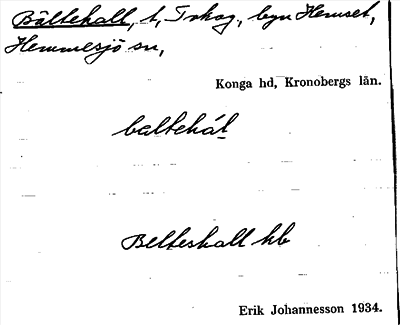 Bältehall, t, I skog, byn Hemset,
Hemmesjö sn,
Konga hd, Kronobergs län.
baltehál
Belteshall kb
Erik Johannesson 1934.